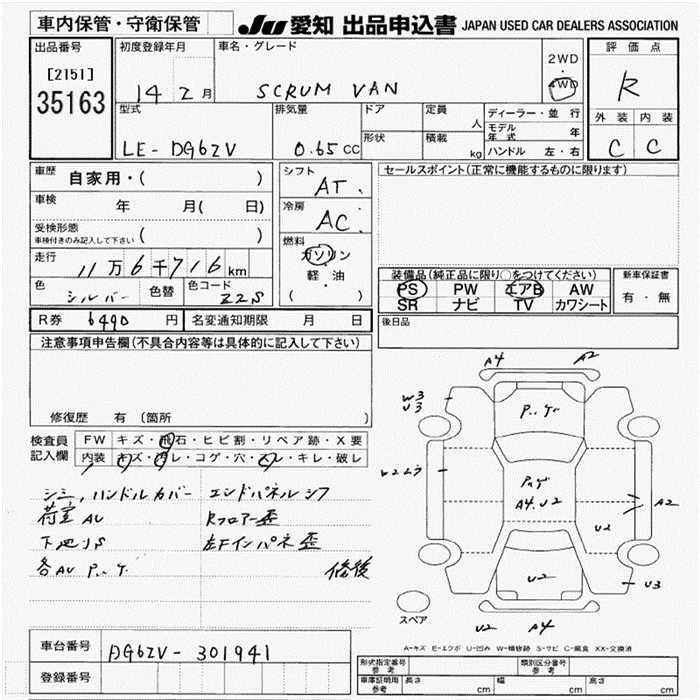 車内保管・守衛保管 JU 愛知 出品申込書 JAPAN USED CAR DEALERS ASSOCIATION
出品番号
[2151]
35163
初度登録年月
14 2 月
車名・グレード
SCRUM VAN
2WD
・
4WD
評価点
R
外装 内装
C C
型式
LE-DG62V
排気量
0.65 CC
ドア
形状
定員
人
積載
kg
ディーラー・並行
モデル年式 年
ハンドル 左・右
車歴
自家用・( )
車検
年 月( 日)
受検形態
車検付きのみ記入して下さい ( )
走行
11万6千716km
色
シルバー 色替
色コード
Z2S
シフト
AT.
冷房
AC.
燃料
ガソリン
軽・油
( )
セールスポイント(正常に機能するものに限ります)
装備品(純正品に限り○をつけてください)
PS PW エアB AW
SR ナビ TV カワシート
新車保証書
有・無
R券 6490 円 名変通知期限 月 日
後日品
注意事項申告欄(不具合内容等は具体的に記入して下さい)
修復歴 有 (箇所 )
検査員記入欄
FW キズ・飛石・ヒビ割・リペア跡・X要
内装 キズ・汚レ・コゲ・穴・スレ・キレ・破レ
シミ, ハンドルカバー エンドパネルシワ
荷室AU Rフロアー歪
下廻りS 左Fインパネ歪
各AU P..ゲ 修復
A4 A2
W3
U3
P..ゲ
W2ムラ
P..ゲ
A4.U2
A2
U2
U2
U3
スペア
U2 A4
A-キズ E-エクボ U-凹み W-補修跡 S-サビ C-腐食 XX-交換済
車台番号 DG62V-301941
登録番号
形式指定番号 参考
類別区分番号 参考
車庫証明用 参考 長さ cm 幅 cm 高さ cm